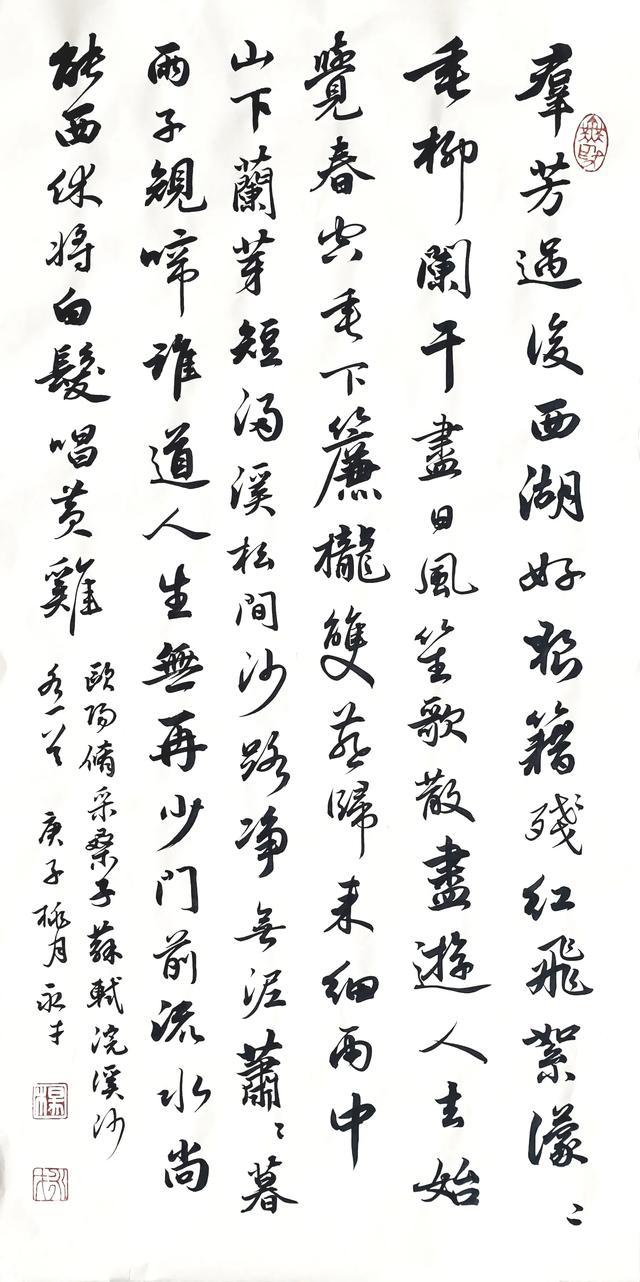 羣芳過後西湖好狼籍殘紅飛絮濛〻
垂柳闌干盡日風笙歌散盡遊人去始
覺春空垂下簾櫳雙燕歸来細雨中
山下蘭芽短浸溪松間沙路净無泥蕭〻暮
雨子規啼誰道人生無再少門前流水尚
能西休將白髮唱黄雞
歐陽脩采桑子蘇軾浣溪沙
各一首 庚子桃月永才